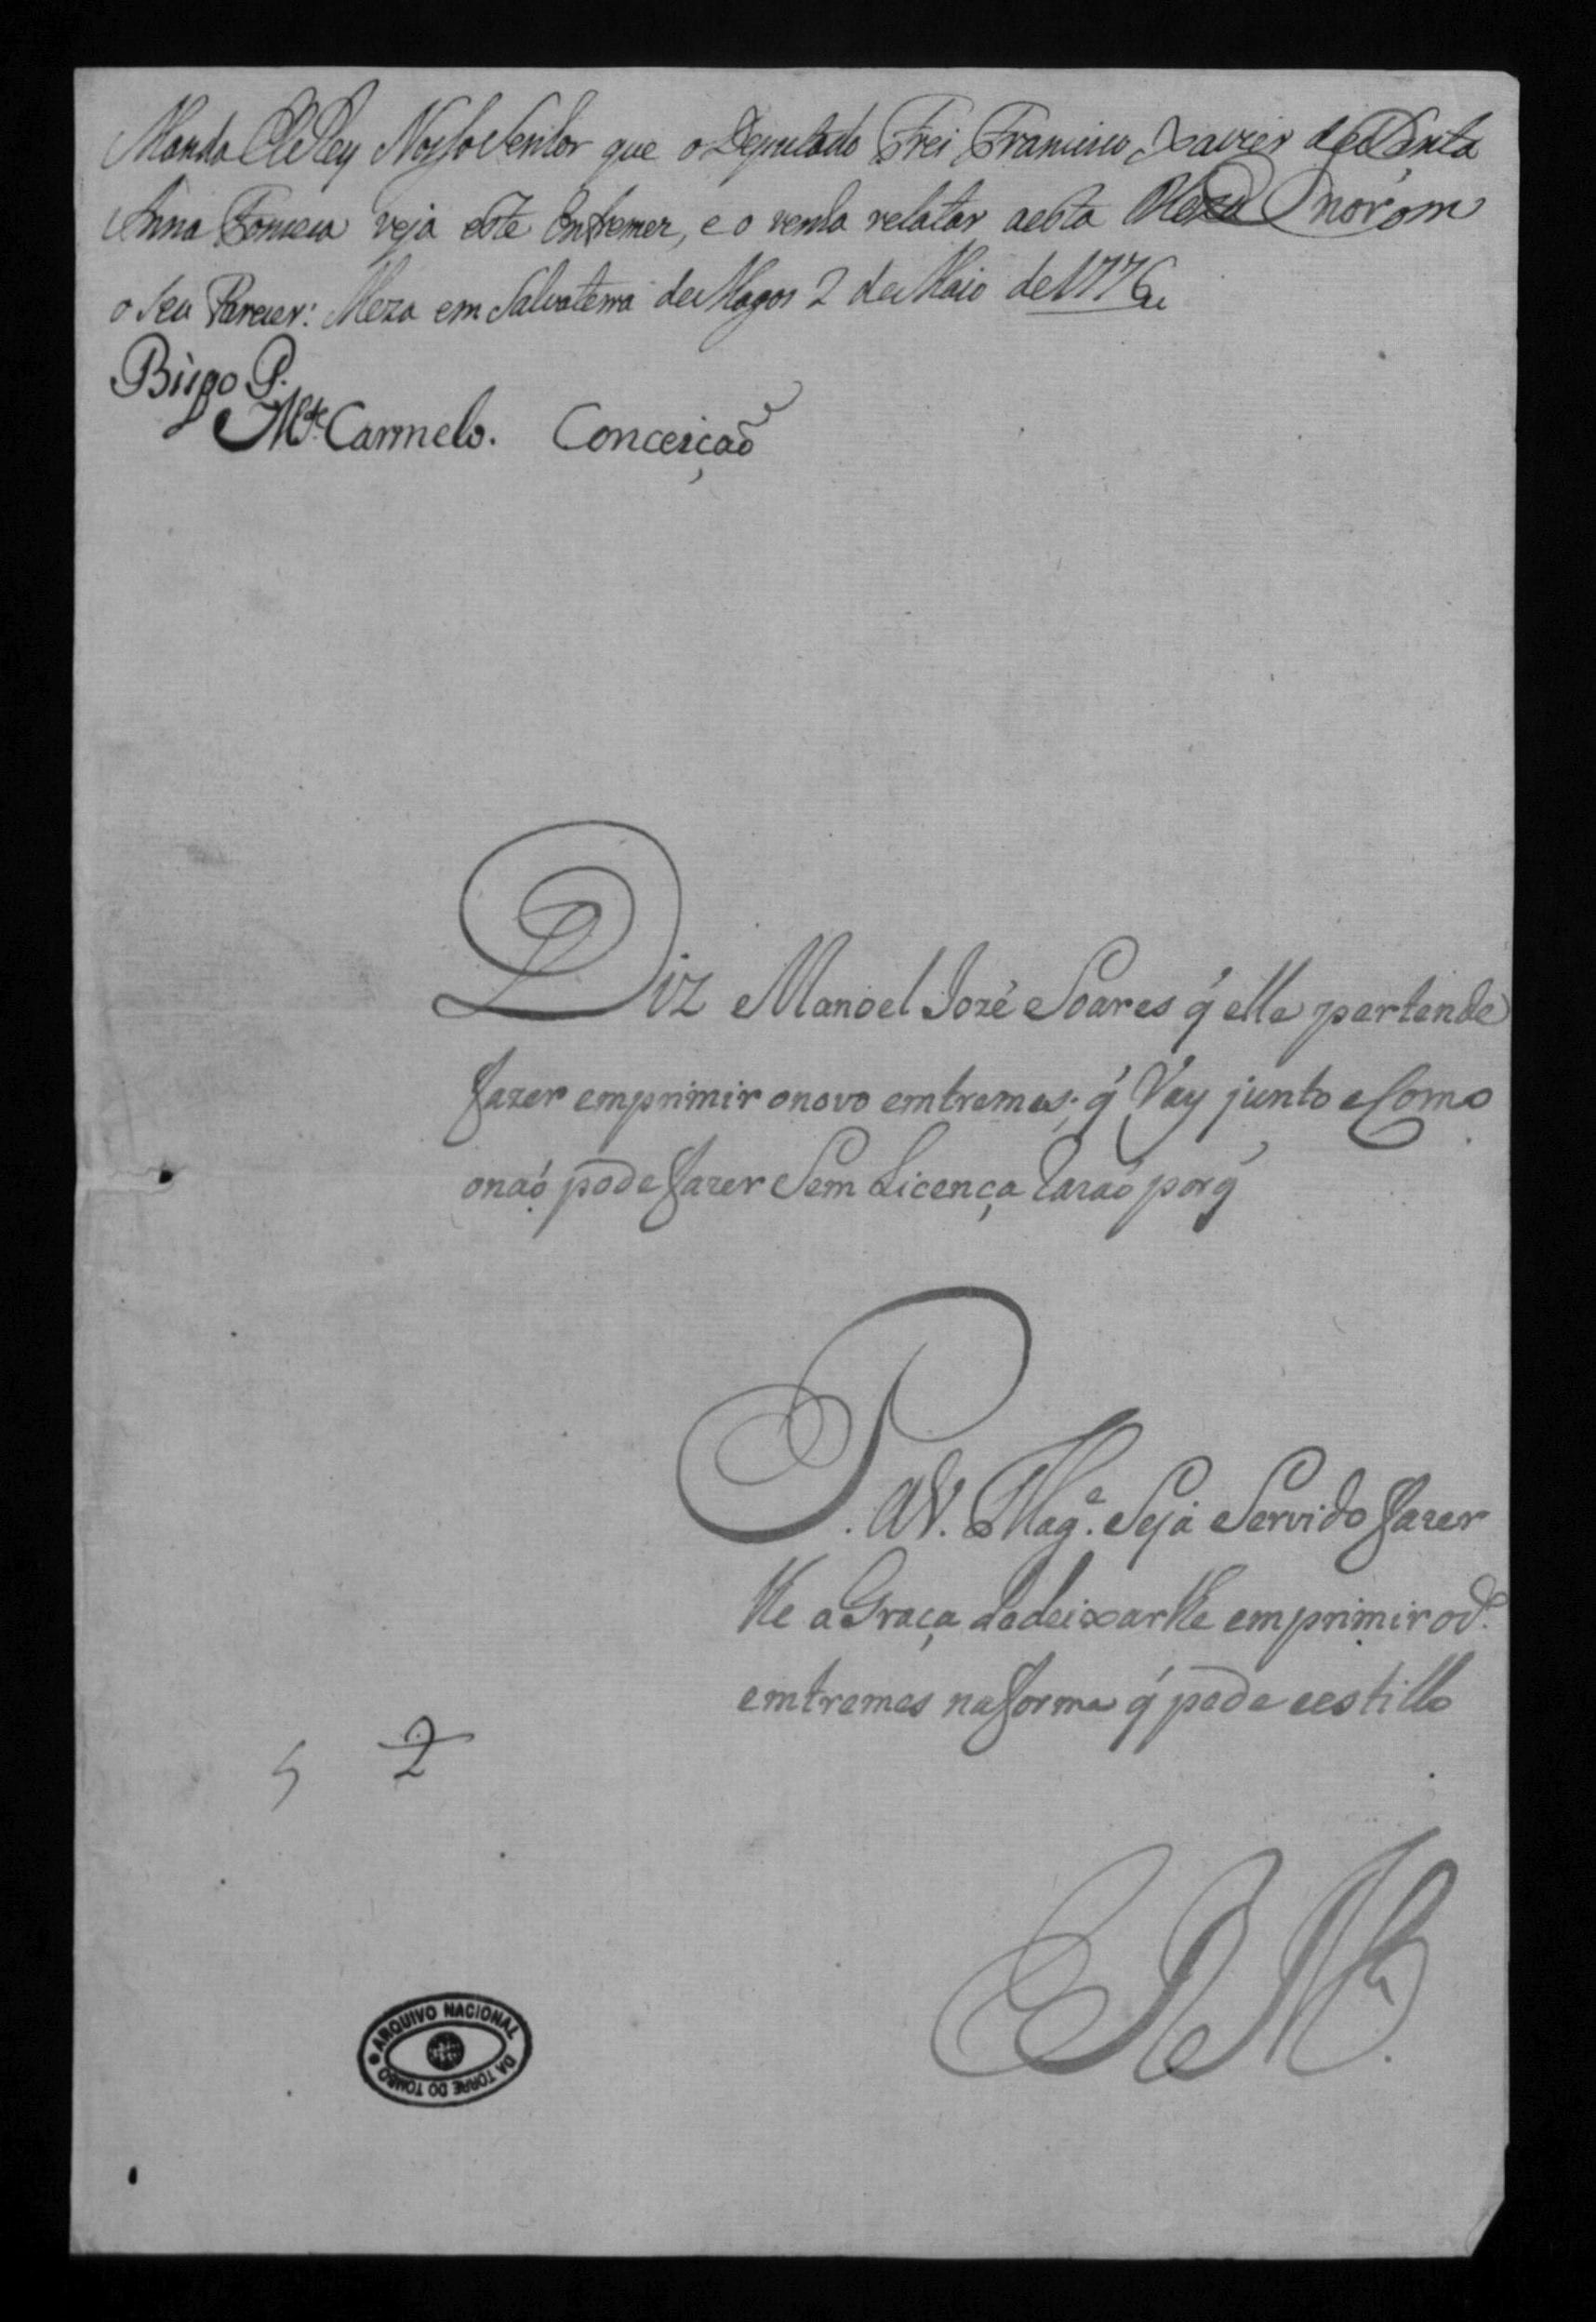 Manda ElRey Nosso Senhor que o Deputado Frei Francisco Xavier de Santa
Anna Fonseca veja este Entremez, e o venha relatar a esta Meza com
o seu Parecer: Meza em Salvaterra de Magos 2 de Maio de 1776
Bispo P.
Mte. Carmelo. Conceição
Diz Manoel Jozé Soares q̃ elle pertende
fazer emprimir o novo emtremes; q̃ Vay junto e Como
o naó pode fazer Sem Licença Razaó porq̃
P. a V. Mag.e Seja Servido fazer
lhe a Graça de deixarlhe emprimir o d.o
emtremes na forma q̃ pede e estillo
5 2
E R M
ARQUIVO NACIONAL
DA TORRE DO TOMBO